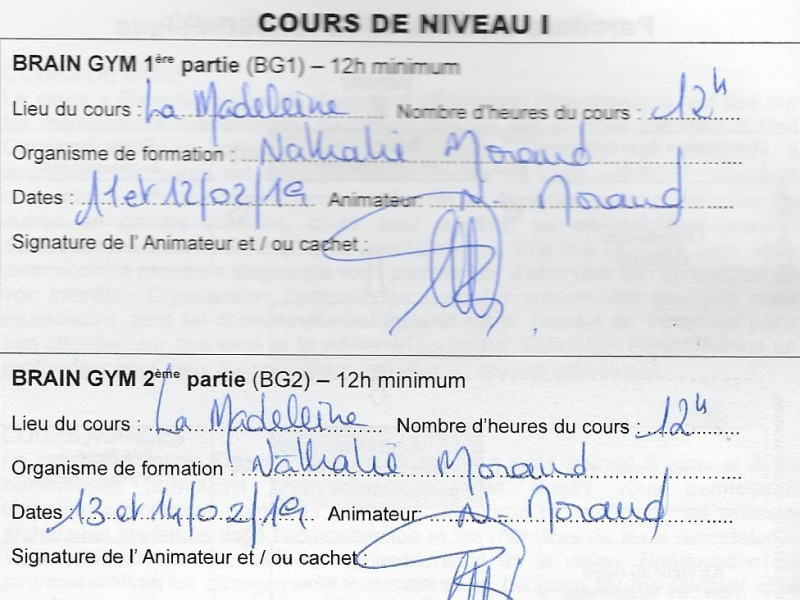 COURS DE NIVEAU I
BRAIN GYM 1ère partie (BG1) – 12h minimum
Lieu du cours : La Madeleine Nombre d'heures du cours : 12h
Organisme de formation : Nathalie Moraud
Dates : 11 et 12/02/19 Animateur: N- Moraud
Signature de l' Animateur et / ou cachet :
BRAIN GYM 2ème partie (BG2) – 12h minimum
Lieu du cours : La Madeleine Nombre d'heures du cours : 12h
Organisme de formation : Nathalie Moraud
Dates 13 et 14/02/19 Animateur: N- Moraud
Signature de l' Animateur et / ou cachet